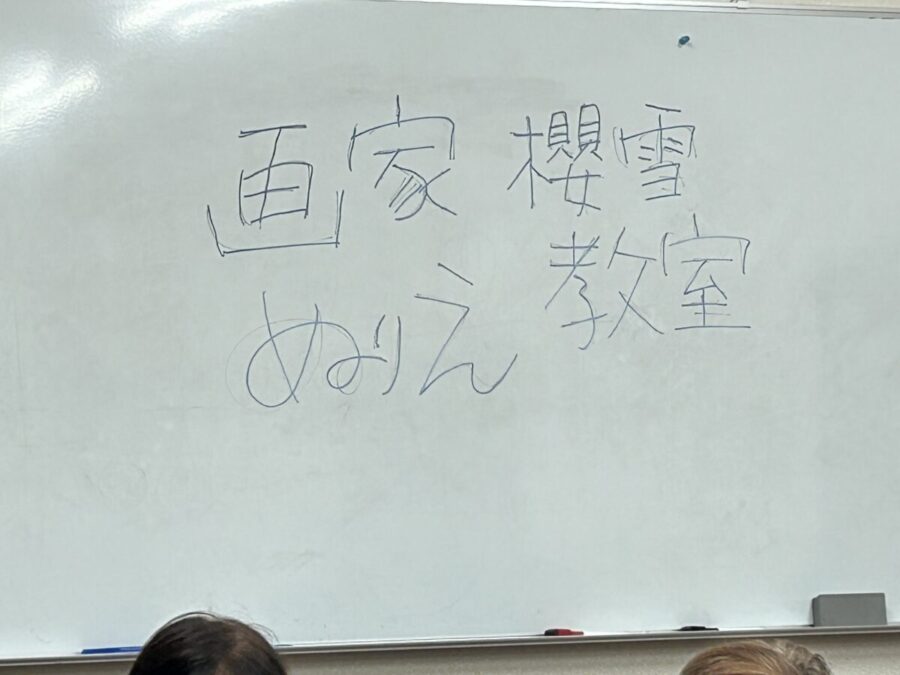 画家 櫻雪
ぬりえ 教室